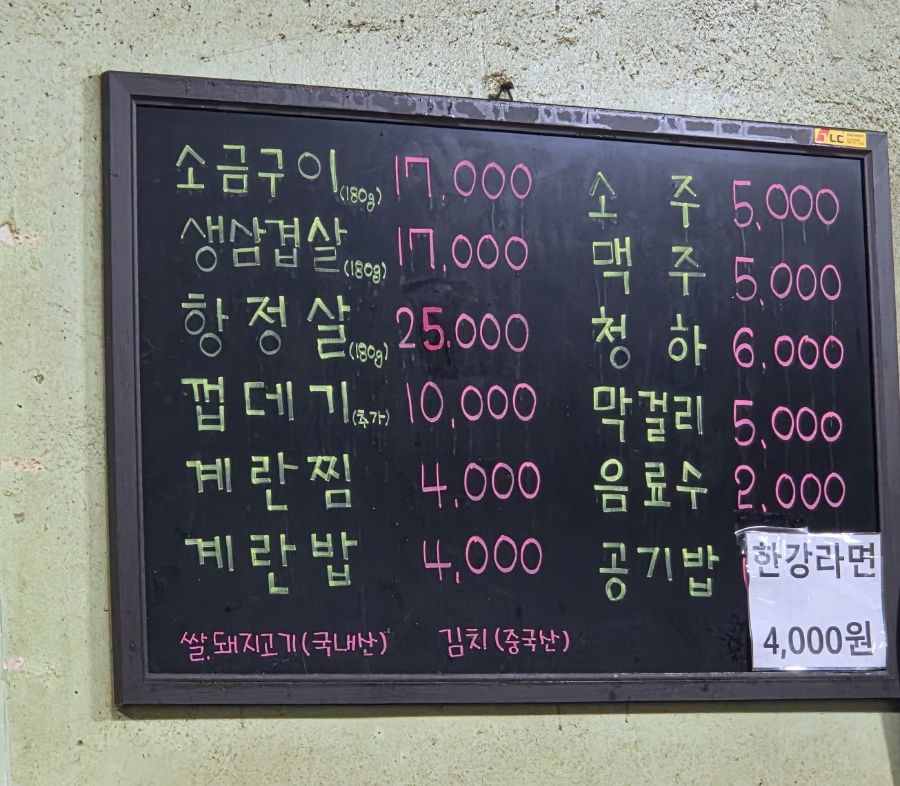 소금구이(180g) 17,000
생삼겹살(180g) 17,000
항정살(180g) 25,000
껍데기(추가) 10,000
계란찜 4,000
계란밥 4,000
소주 5,000
맥주 5,000
청하 6,000
막걸리 5,000
음료수 2,000
공기밥
한강라면
4,000원
쌀.돼지고기(국내산) 김치(중국산)
LC